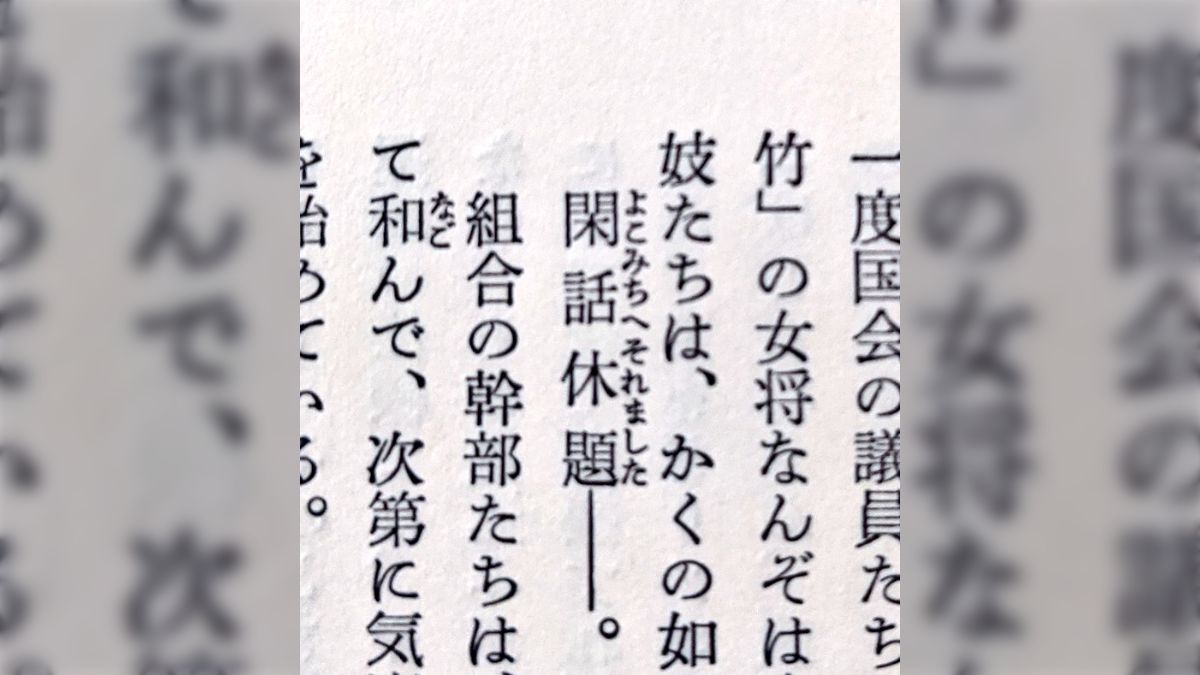 一度国会の議員たち
竹」の女将なんぞは
妓たちは、かくの如
閑話休題――。
よこみちへそれました
組合の幹部たちは、
て和んで、次第に気
など
を始めている。